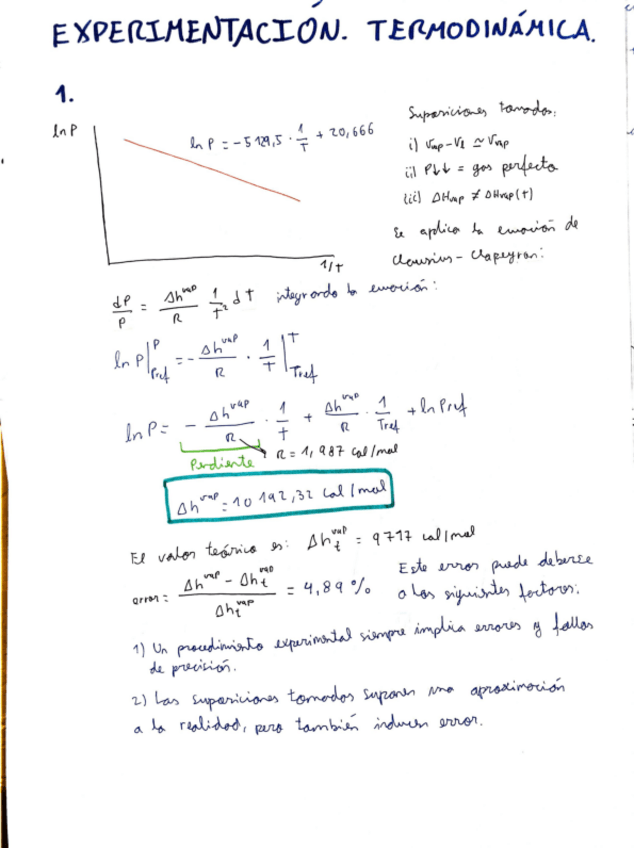 EXPERIMENTACIÓN. TERMODINÁMICA.
1.
ln P
ln P = -5129,5 · 1/T + 20,666
1/T
Suposiciones tomadas:
i) Vvap - Vl ≃ Vvap
ii) P↓↓ = gas perfecto
iii) ΔHvap ≠ ΔHvap(T)
Se aplica la ecuación de
Clausius - Clapeyron:
dP/P = Δh^vap/R 1/T² dT integrando la ecuación:
ln P |_Pref^P = - Δh^vap/R · 1/T |_Tref^T
ln P = - Δh^vap/R · 1/T + Δh^vap/R · 1/Tref + ln Pref
Pendiente
R = 1,987 cal/mol
Δh^vap = 10192,32 cal/mol
El valor teórico es: Δh_t^vap = 9717 cal/mol
error = (Δh^vap - Δh_t^vap)/Δh_t^vap = 4,89 %
Este error puede deberse
a los siguientes factores:
1) Un procedimiento experimental siempre implica errores y fallos
de precisión.
2) Las suposiciones tomadas suponen una aproximación
a la realidad, pero también inducen error.